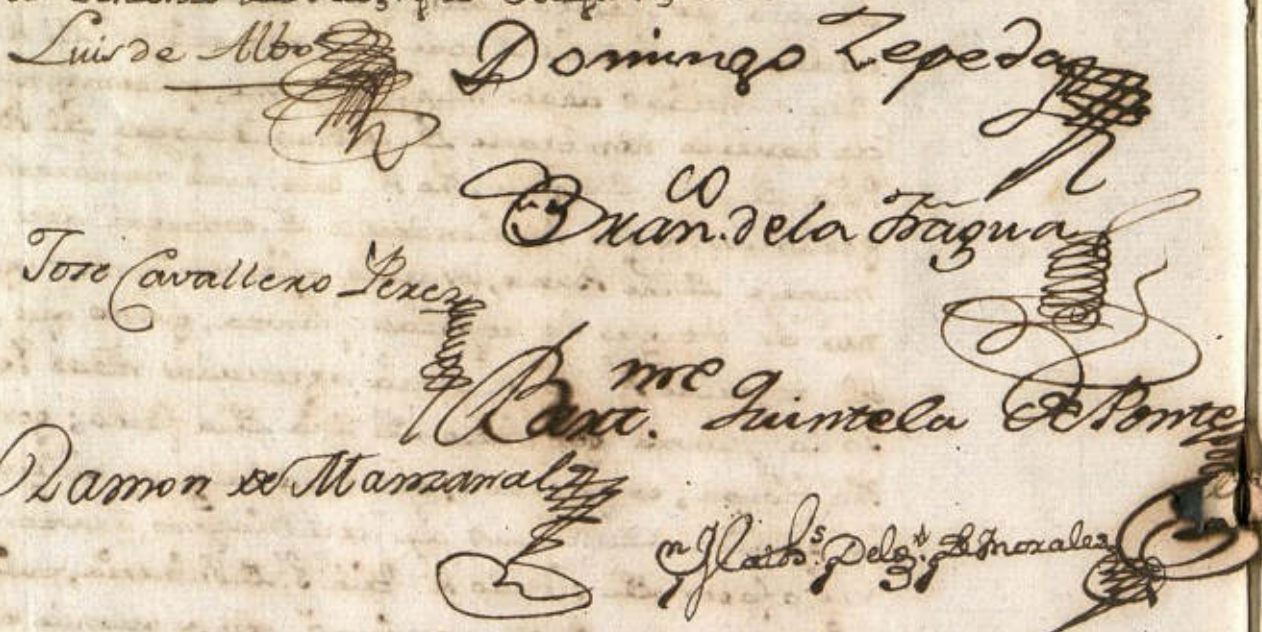 Luis de Albo
Domingo Zepeda
Fran.co de la Fragua
Jose Cavallero Perez
Bart.me Quintela de Ponte
Ramon de Manzanal
Morales